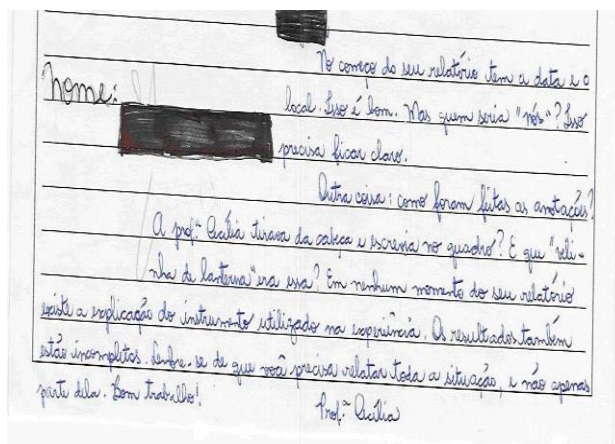 No começo do seu relatório tem a data e o
Nome:
local. Isso é bom. Mas quem seria "nós"? Isso
precisa ficar claro.
Outra coisa: como foram feitas as anotações?
A prof.ª Cecília tirava da cabeça e escrevia no quadro? E que "veli-
nha de lanterna" era essa? Em nenhum momento do seu relatório
existe a explicação do instrumento utilizado na experiência. Os resultados também
estão incompletos. Lembre-se de que você precisa relatar toda a situação, e não apenas
parte dela. Bom trabalho!
Prof.ª Cecília